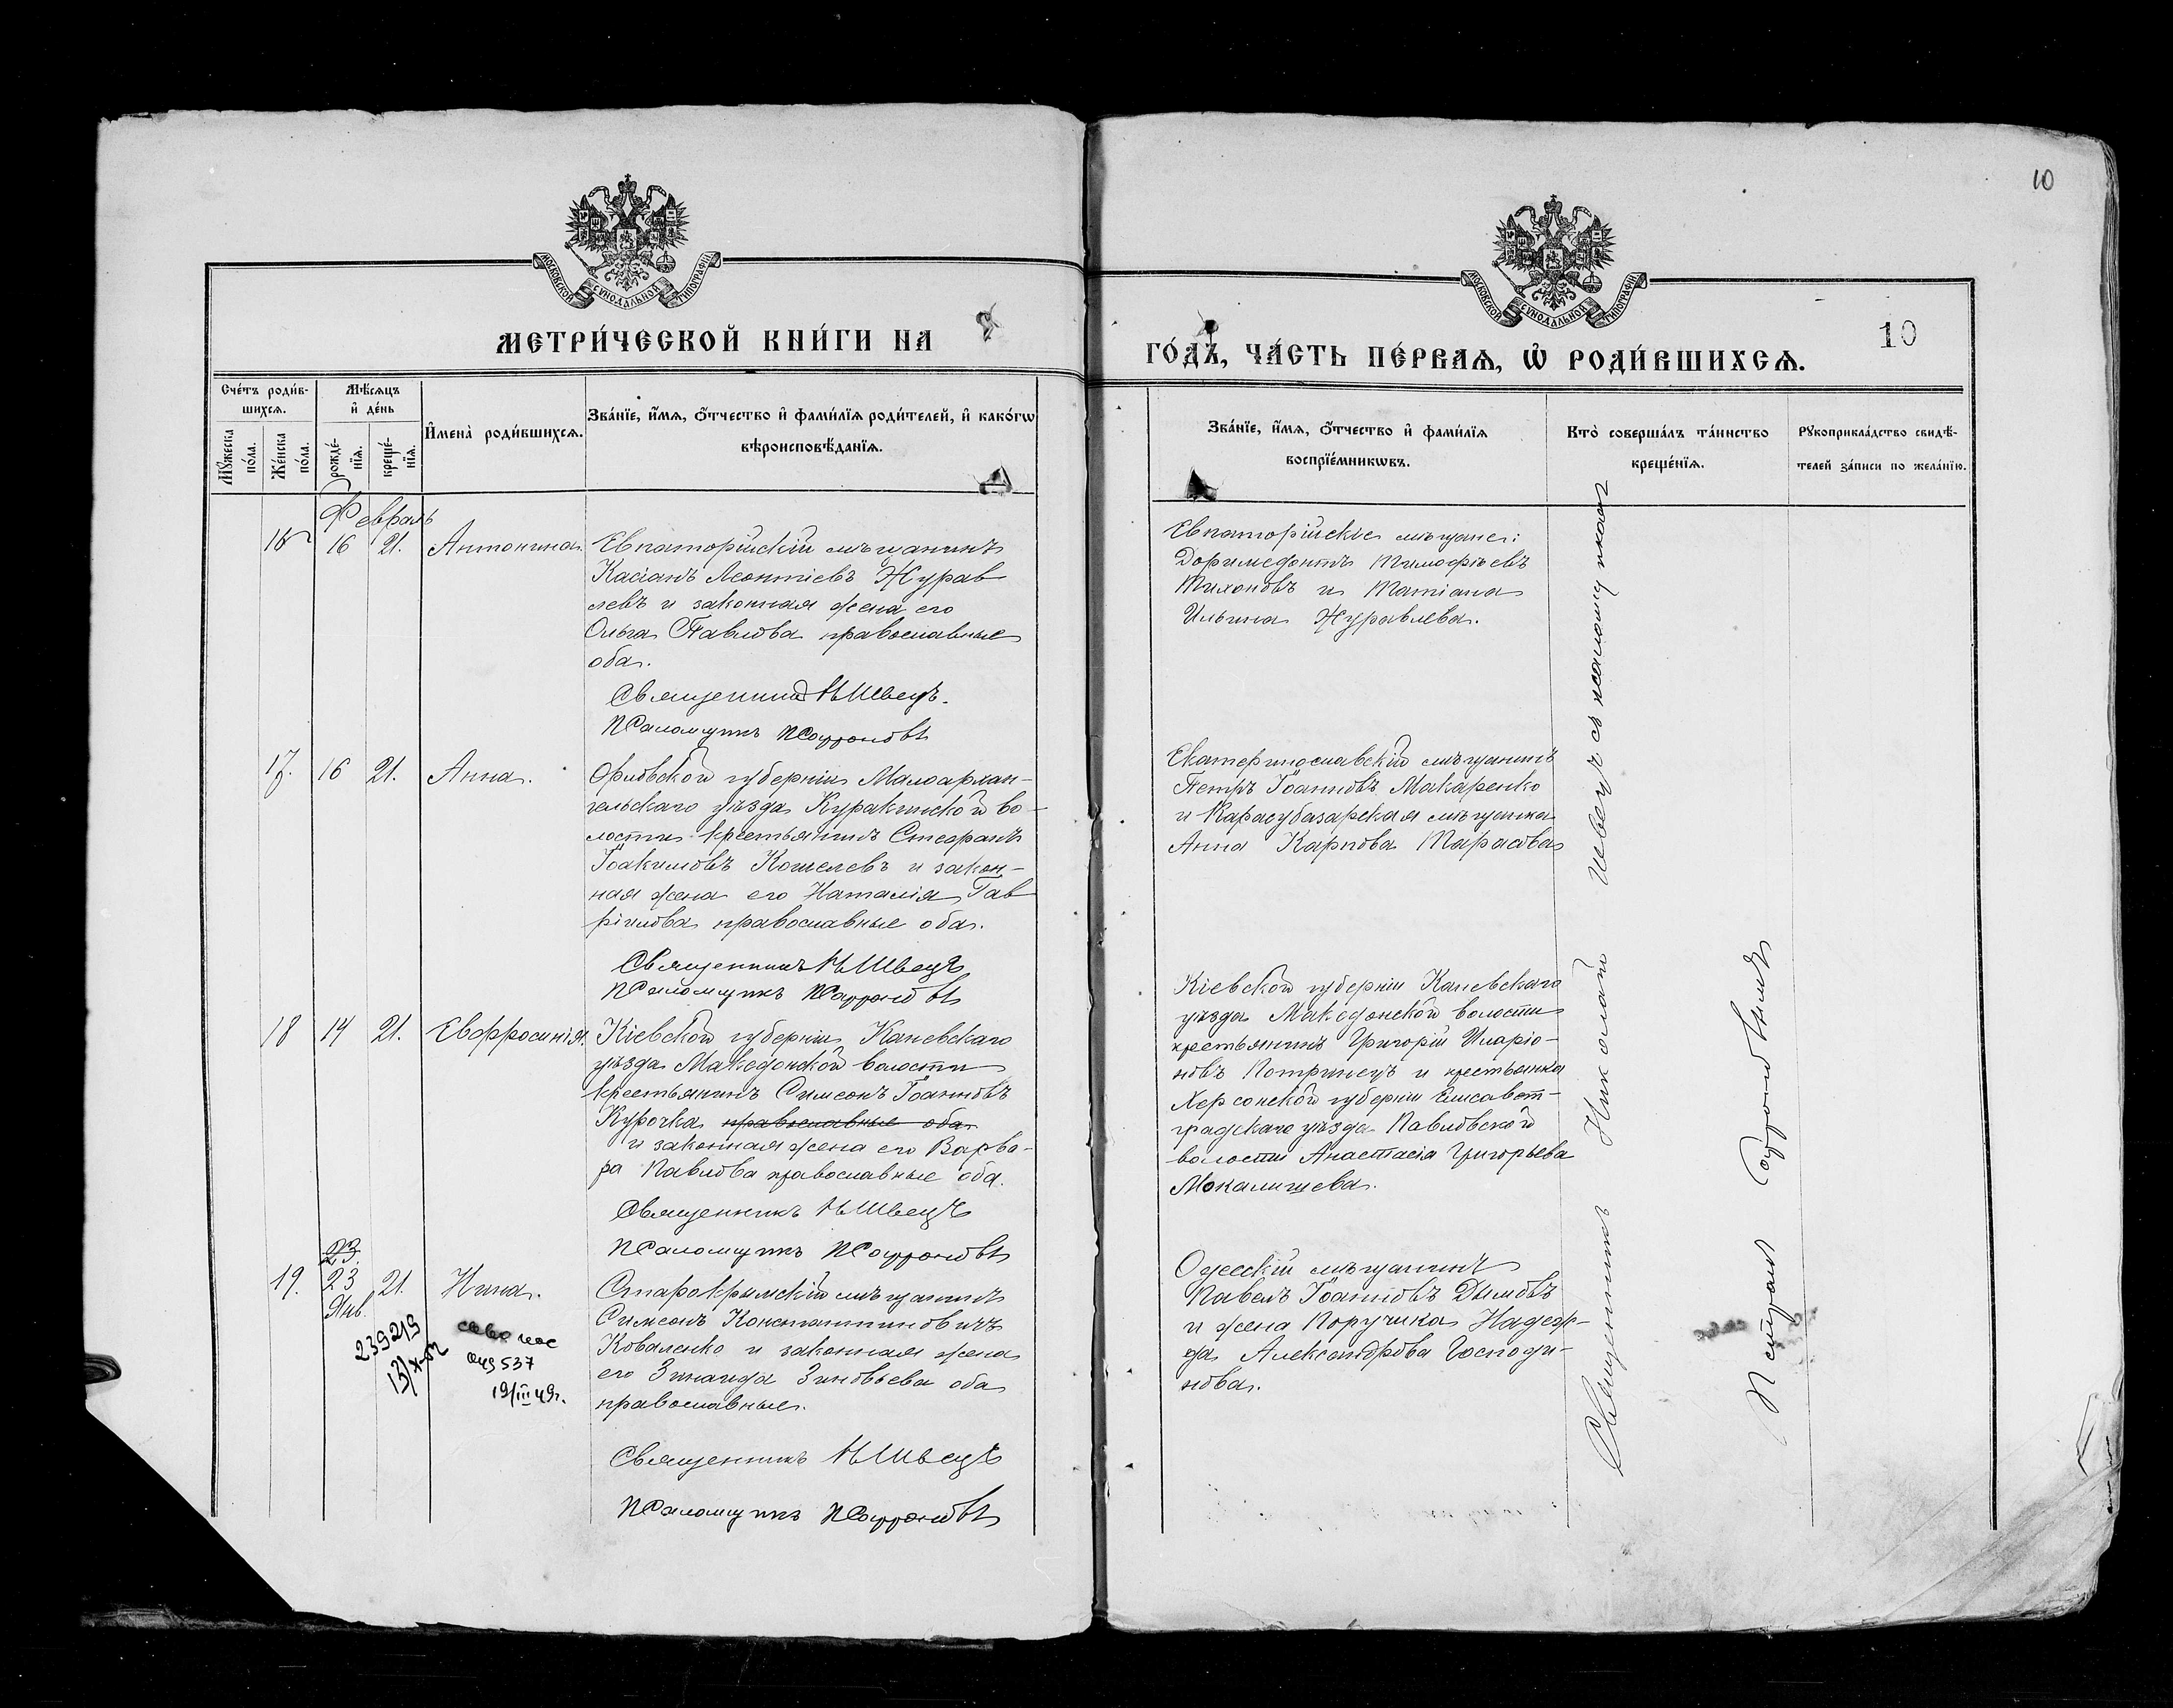 10
МОСКОВСКОЙ СѴНОДАЛЬНОЙ ТИПОГРАФІИ
МОСКОВСКОЙ СѴНОДАЛЬНОЙ ТИПОГРАФІИ
МЕТРИ́ЧЕСКОЙ КНИ́ГИ НА
ГО́ДЪ, ЧА́СТЬ ПЕ́РВАѦ, Ѡ҆ РОДИ́ВШИХСѦ.
10
Сче́тъ роди́в-
шихсѧ.
Мꙋжеска по́ла.
Же́нска по́ла.
Мѣ́сѧцъ
и҆ де́нь
рожде́-
нїѧ.
креще́-
нїѧ.
И҆мена̀ роди́вшихсѧ.
Зва́нїе, и҆́мѧ, ѻ҆́тчество и҆ фами́лїѧ роди́телей, и҆ како́гѡ
вѣроисповѣ́данїѧ.
Зва́нїе, и҆́мѧ, ѻ҆́тчество и҆ фами́лїѧ
воспрїе́мникѡвъ.
Кто̀ соверша́лъ та́инство
креще́нїѧ.
Рꙋкоприкла́дство свидѣ́-
телей за́писи по жела́нїю.
Февраль
16 16 21. Антонина.
Евпаторійскій мѣщанинъ
Касіанъ Леонтіевъ Журав
левъ и законная жена его
Ольга Павлова православные
оба.
Священникъ Н Швецъ.
Псаломщикъ П Софроновъ
Евпаторійскіе мѣщане:
Доримедонтъ Тимофѣевъ
Тихоновъ и Татіана
Ильина Журавлева.
17. 16 21. Анна.
Орловской губерніи Малоархан-
гельскаго уѣзда Куракинской во-
лости крестьянинъ Стефанъ
Іоакимовъ Кошелевъ и закон-
ная жена его Наталія Гав
ріилова православные оба.
Священникъ Н Швецъ
Псаломщикъ П Софроновъ
Екатеринославскій мѣщанинъ
Петръ Іоанновъ Макаренко
и Карасубазарская мѣщанка
Анна Карпова Тарасова
18 14 21. Евфросинія.
Кіевской губерніи Каневскаго
уѣзда Македонской волости
крестьянинъ Симеонъ Іоанновъ
Курочка православные оба
и законная жена его Варва-
ра Павлова православные оба.
Священникъ Н Швецъ
Псаломщикъ П Софроновъ
Кіевской губерніи Каневскаго
уѣзда Македонской волости
крестьянинъ Григорій Иларіо-
новъ Потринецъ и крестьянка
Херсонской губерніи Елисавет-
градскаго уѣзда Павловской
волости Анастасія Григорьева
Мокалищева.
23.
19. 23 21. Нина.
Янв.
239219
13/X-52
537
19/III 49г.
Старокрымскій мѣщанинъ
Симеонъ Константиновичъ
Коваленко и законная жена
его Зинаида Зиновьева оба
православные.
Священникъ Н Швецъ
Псаломщикъ П Софроновъ
Одесскій мѣщанинъ
Павелъ Іоанновъ Дымовъ
и жена Поручика Надеж-
да Александрова Господи-
нова.
Священникъ Николай Швецъ съ псаломщикомъ
Петромъ Софроновымъ